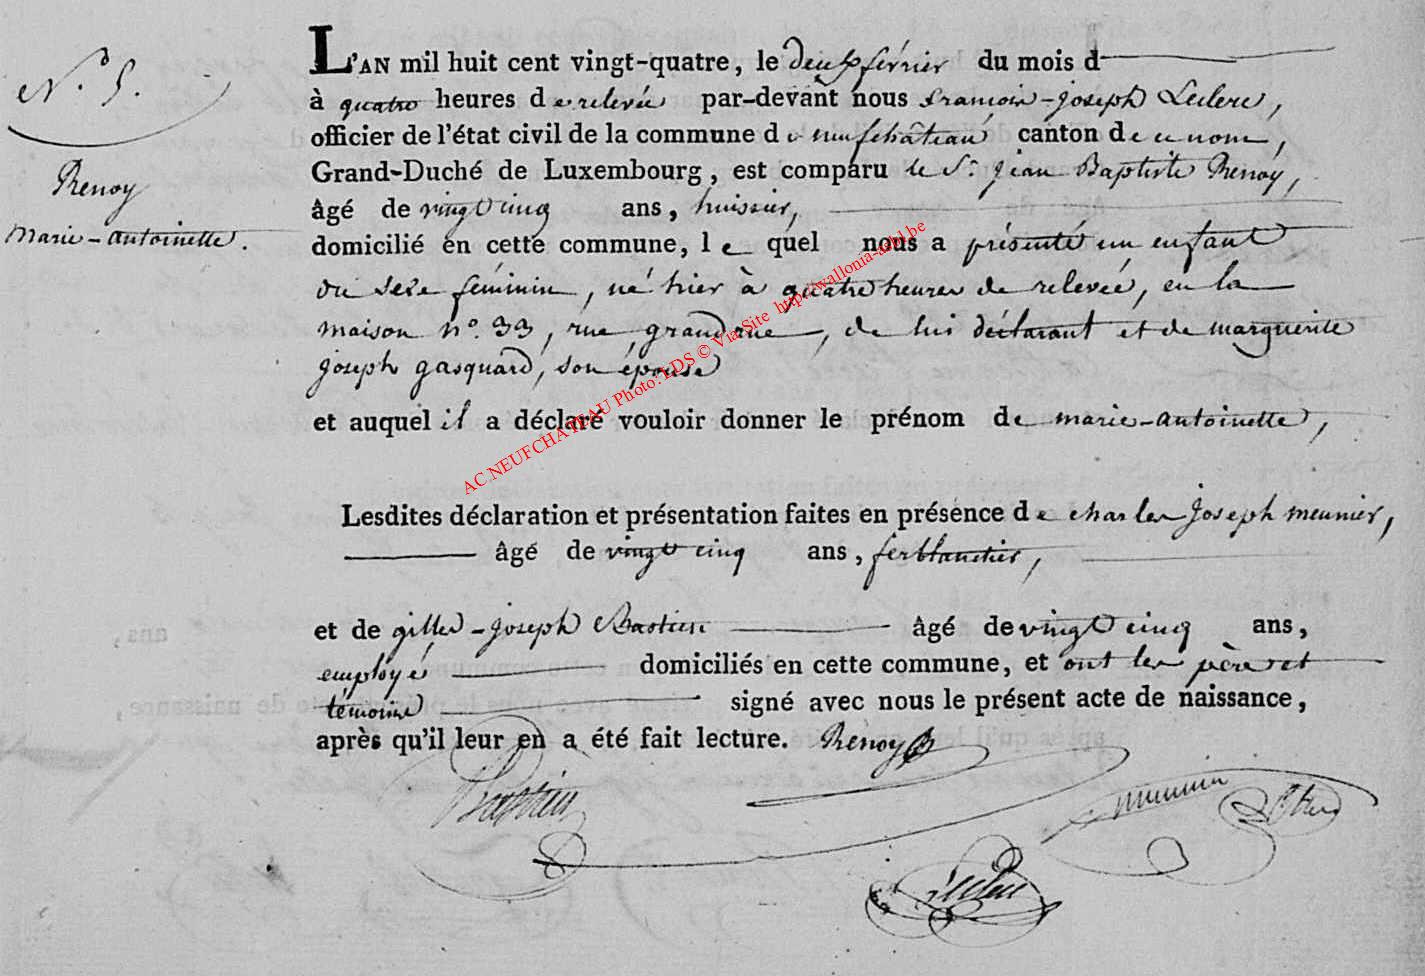 N.º 5.
Renoy
marie-antoinette.
L'AN mil huit cent vingt-quatre, le deux février du mois d
à quatre heures de relevée par-devant nous francois-joseph Leclerc,
officier de l'état civil de la commune de neufchâteau canton de ce nom,
Grand-Duché de Luxembourg, est comparu le Sr. jean Baptiste Renoy,
âgé de vingt cinq ans, huissier,
domicilié en cette commune, lequel nous a présenté un enfant
du sexe féminin, né hier à quatre heures de relevée, en la
maison nº. 33, rue, grand rue, de lui déclarant et de marguerite
joseph gasquard, son épouse
et auquel il a déclaré vouloir donner le prénom de marie-antoinette,
Lesdites déclaration et présentation faites en présence de charles joseph meunier,
âgé de vingt cinq ans, ferblantier,
et de gilles-joseph Bastien âgé de vingt cinq ans,
employé domiciliés en cette commune, et ont les père et
témoins signé avec nous le présent acte de naissance,
après qu'il leur en a été fait lecture. Renoy
Bastien
meunier
Leclerc
AC NEUFCHATEAU Photo: LDS © Via Site http://wallonia-asbl.be